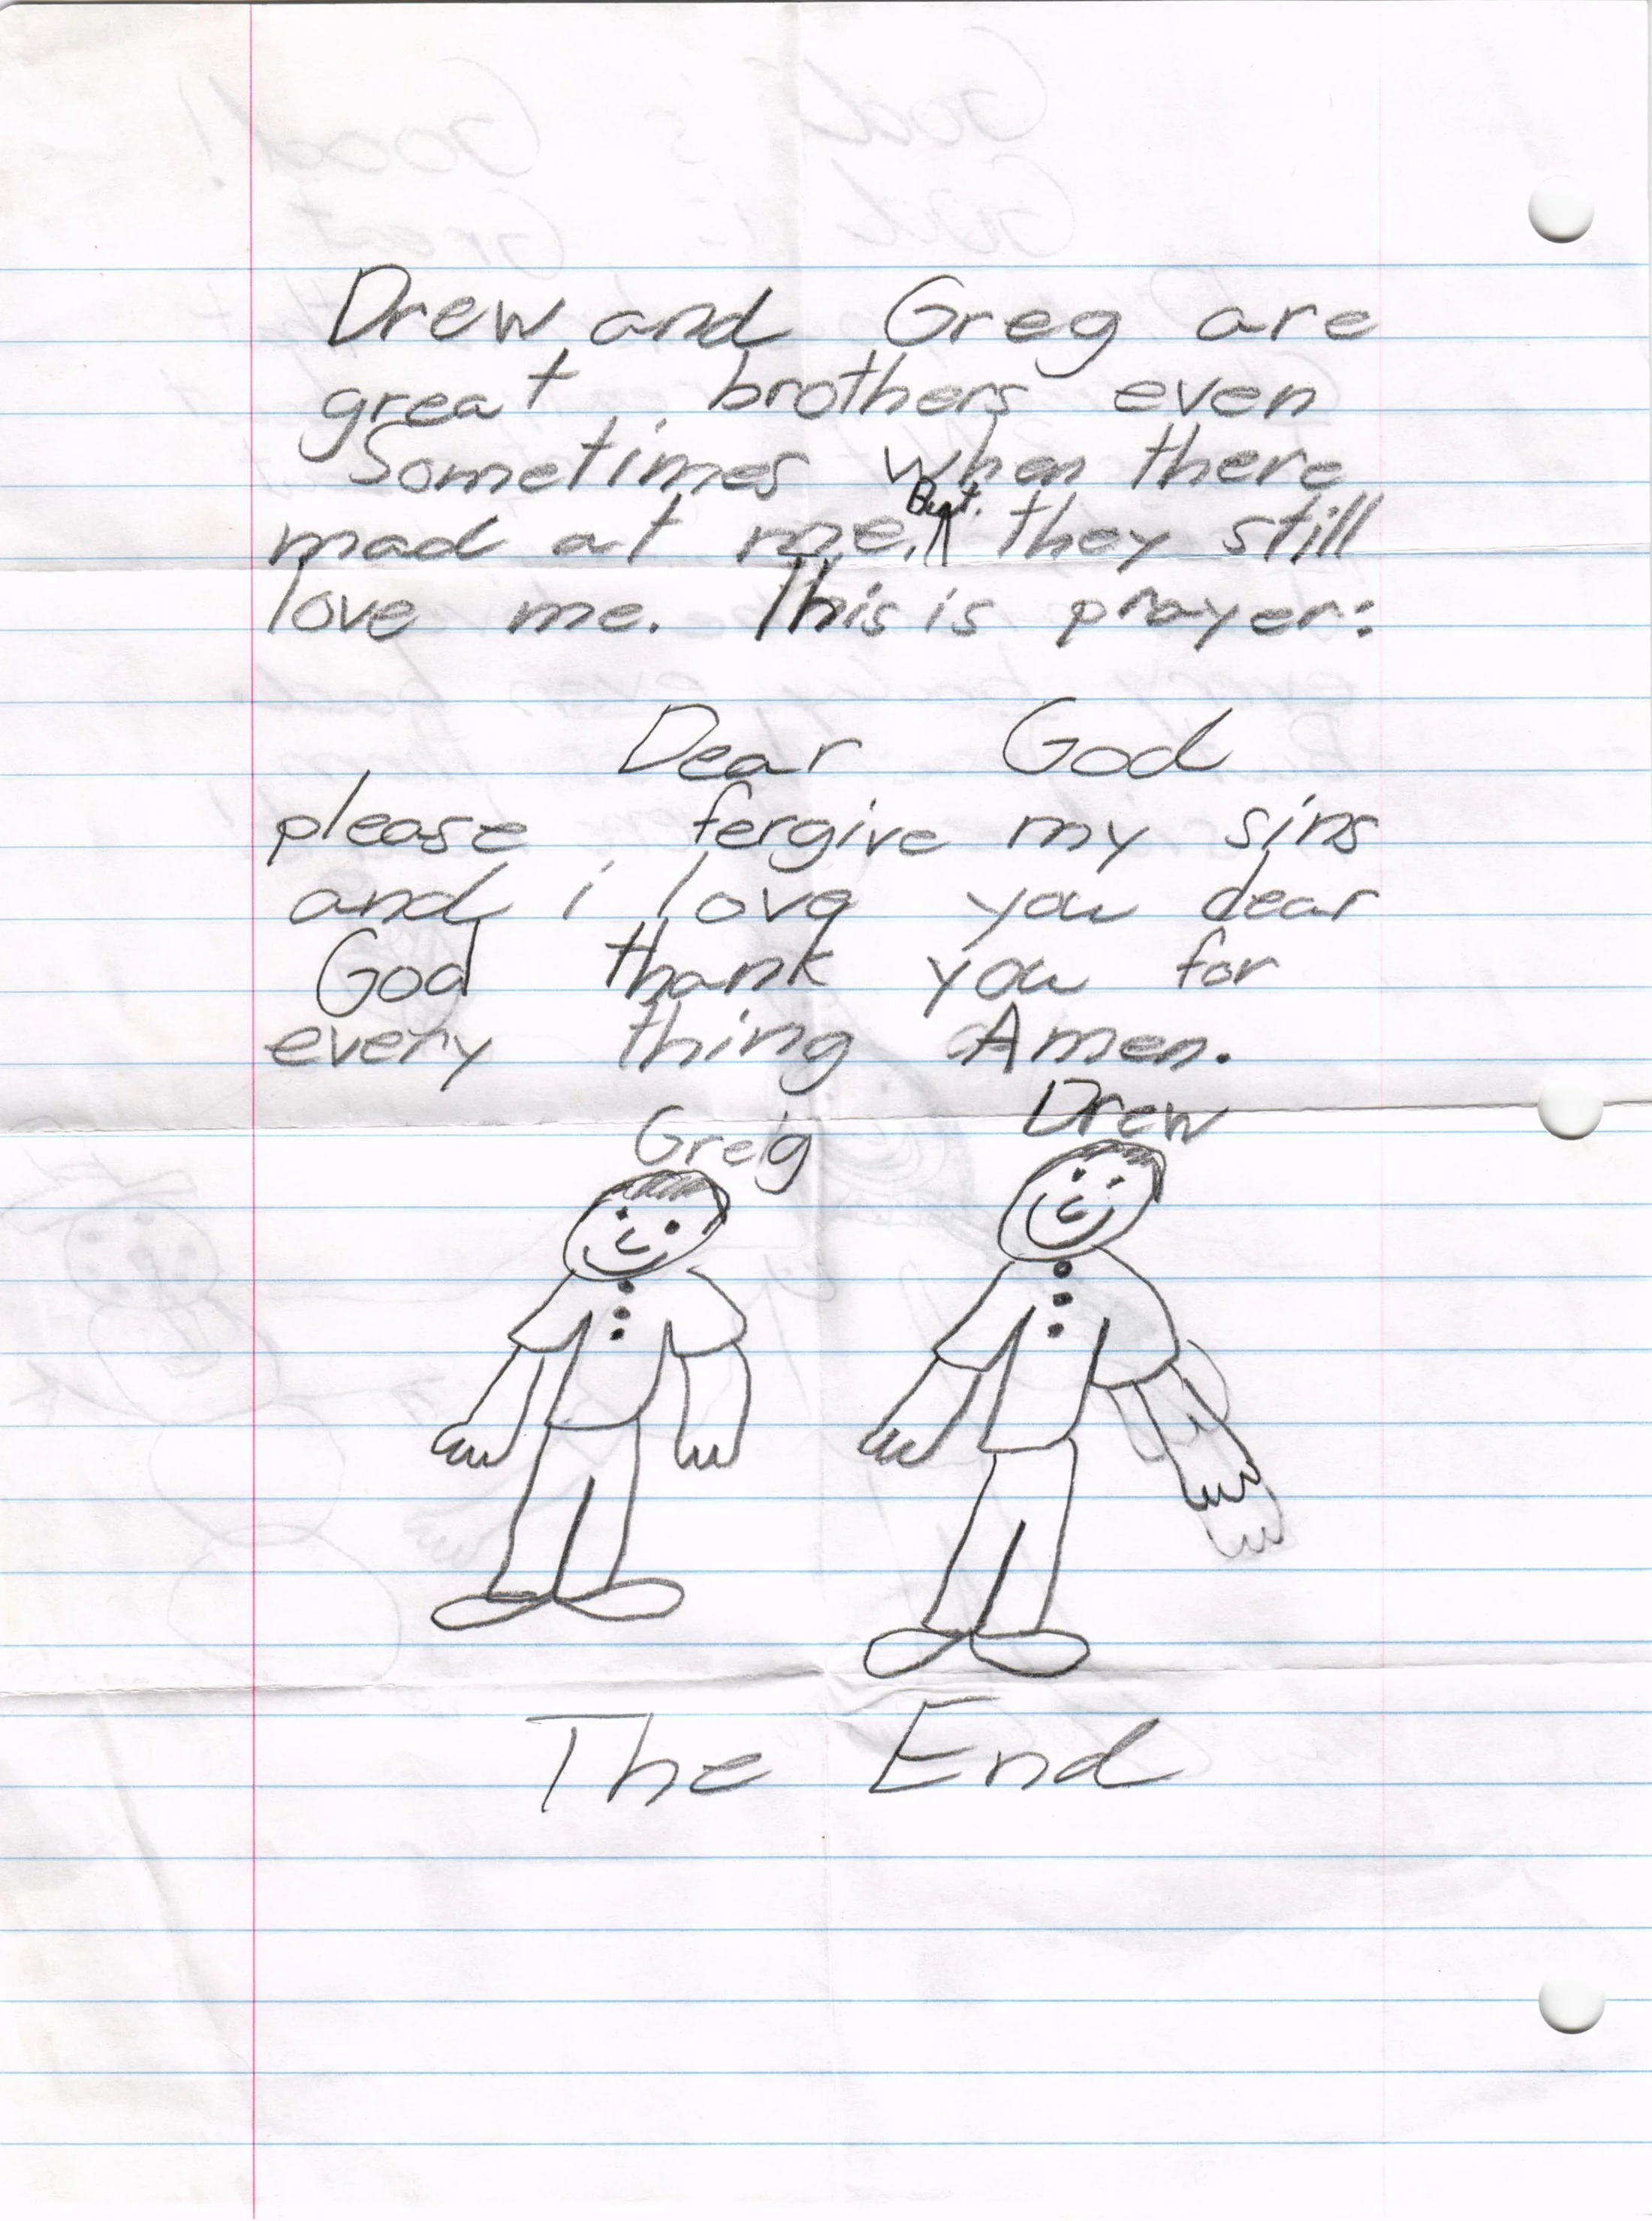 Drew and Greg are
great brothers even
Sometimes when there
mad at me. But. they still
love me. This is prayer:
Dear God
please fergive my sins
and i love you dear
God thank you for
every thing Amen.
Greg Drew
The End